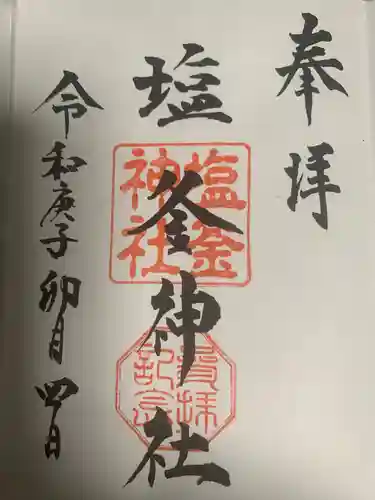 奉拝
塩釜神社
令和庚子卯月四日
塩釜
神社